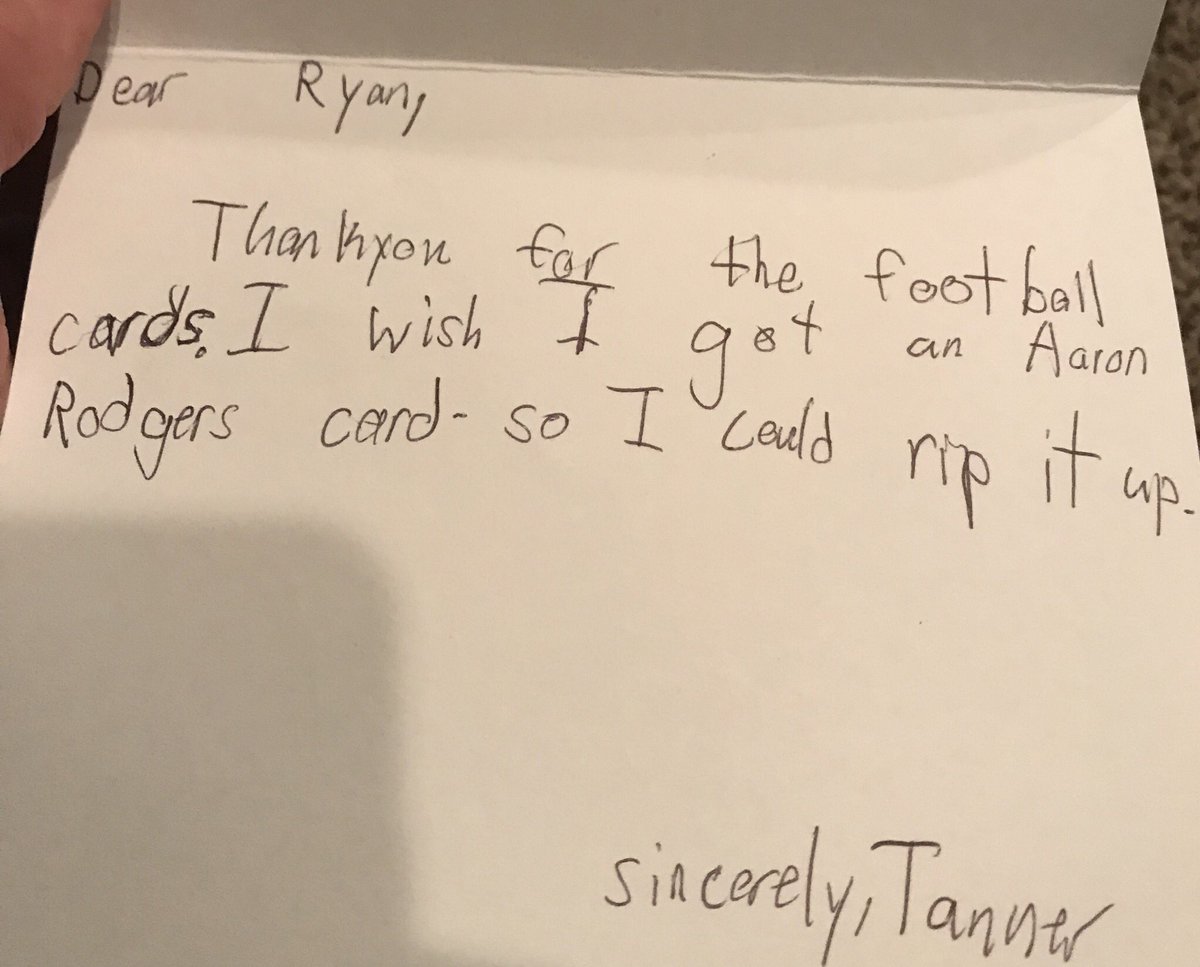 Dear Ryan,
Thankyou for the football
cards. I wish I got an Aaron
Rodgers card- so I could rip it up.
sincerely, Tanner